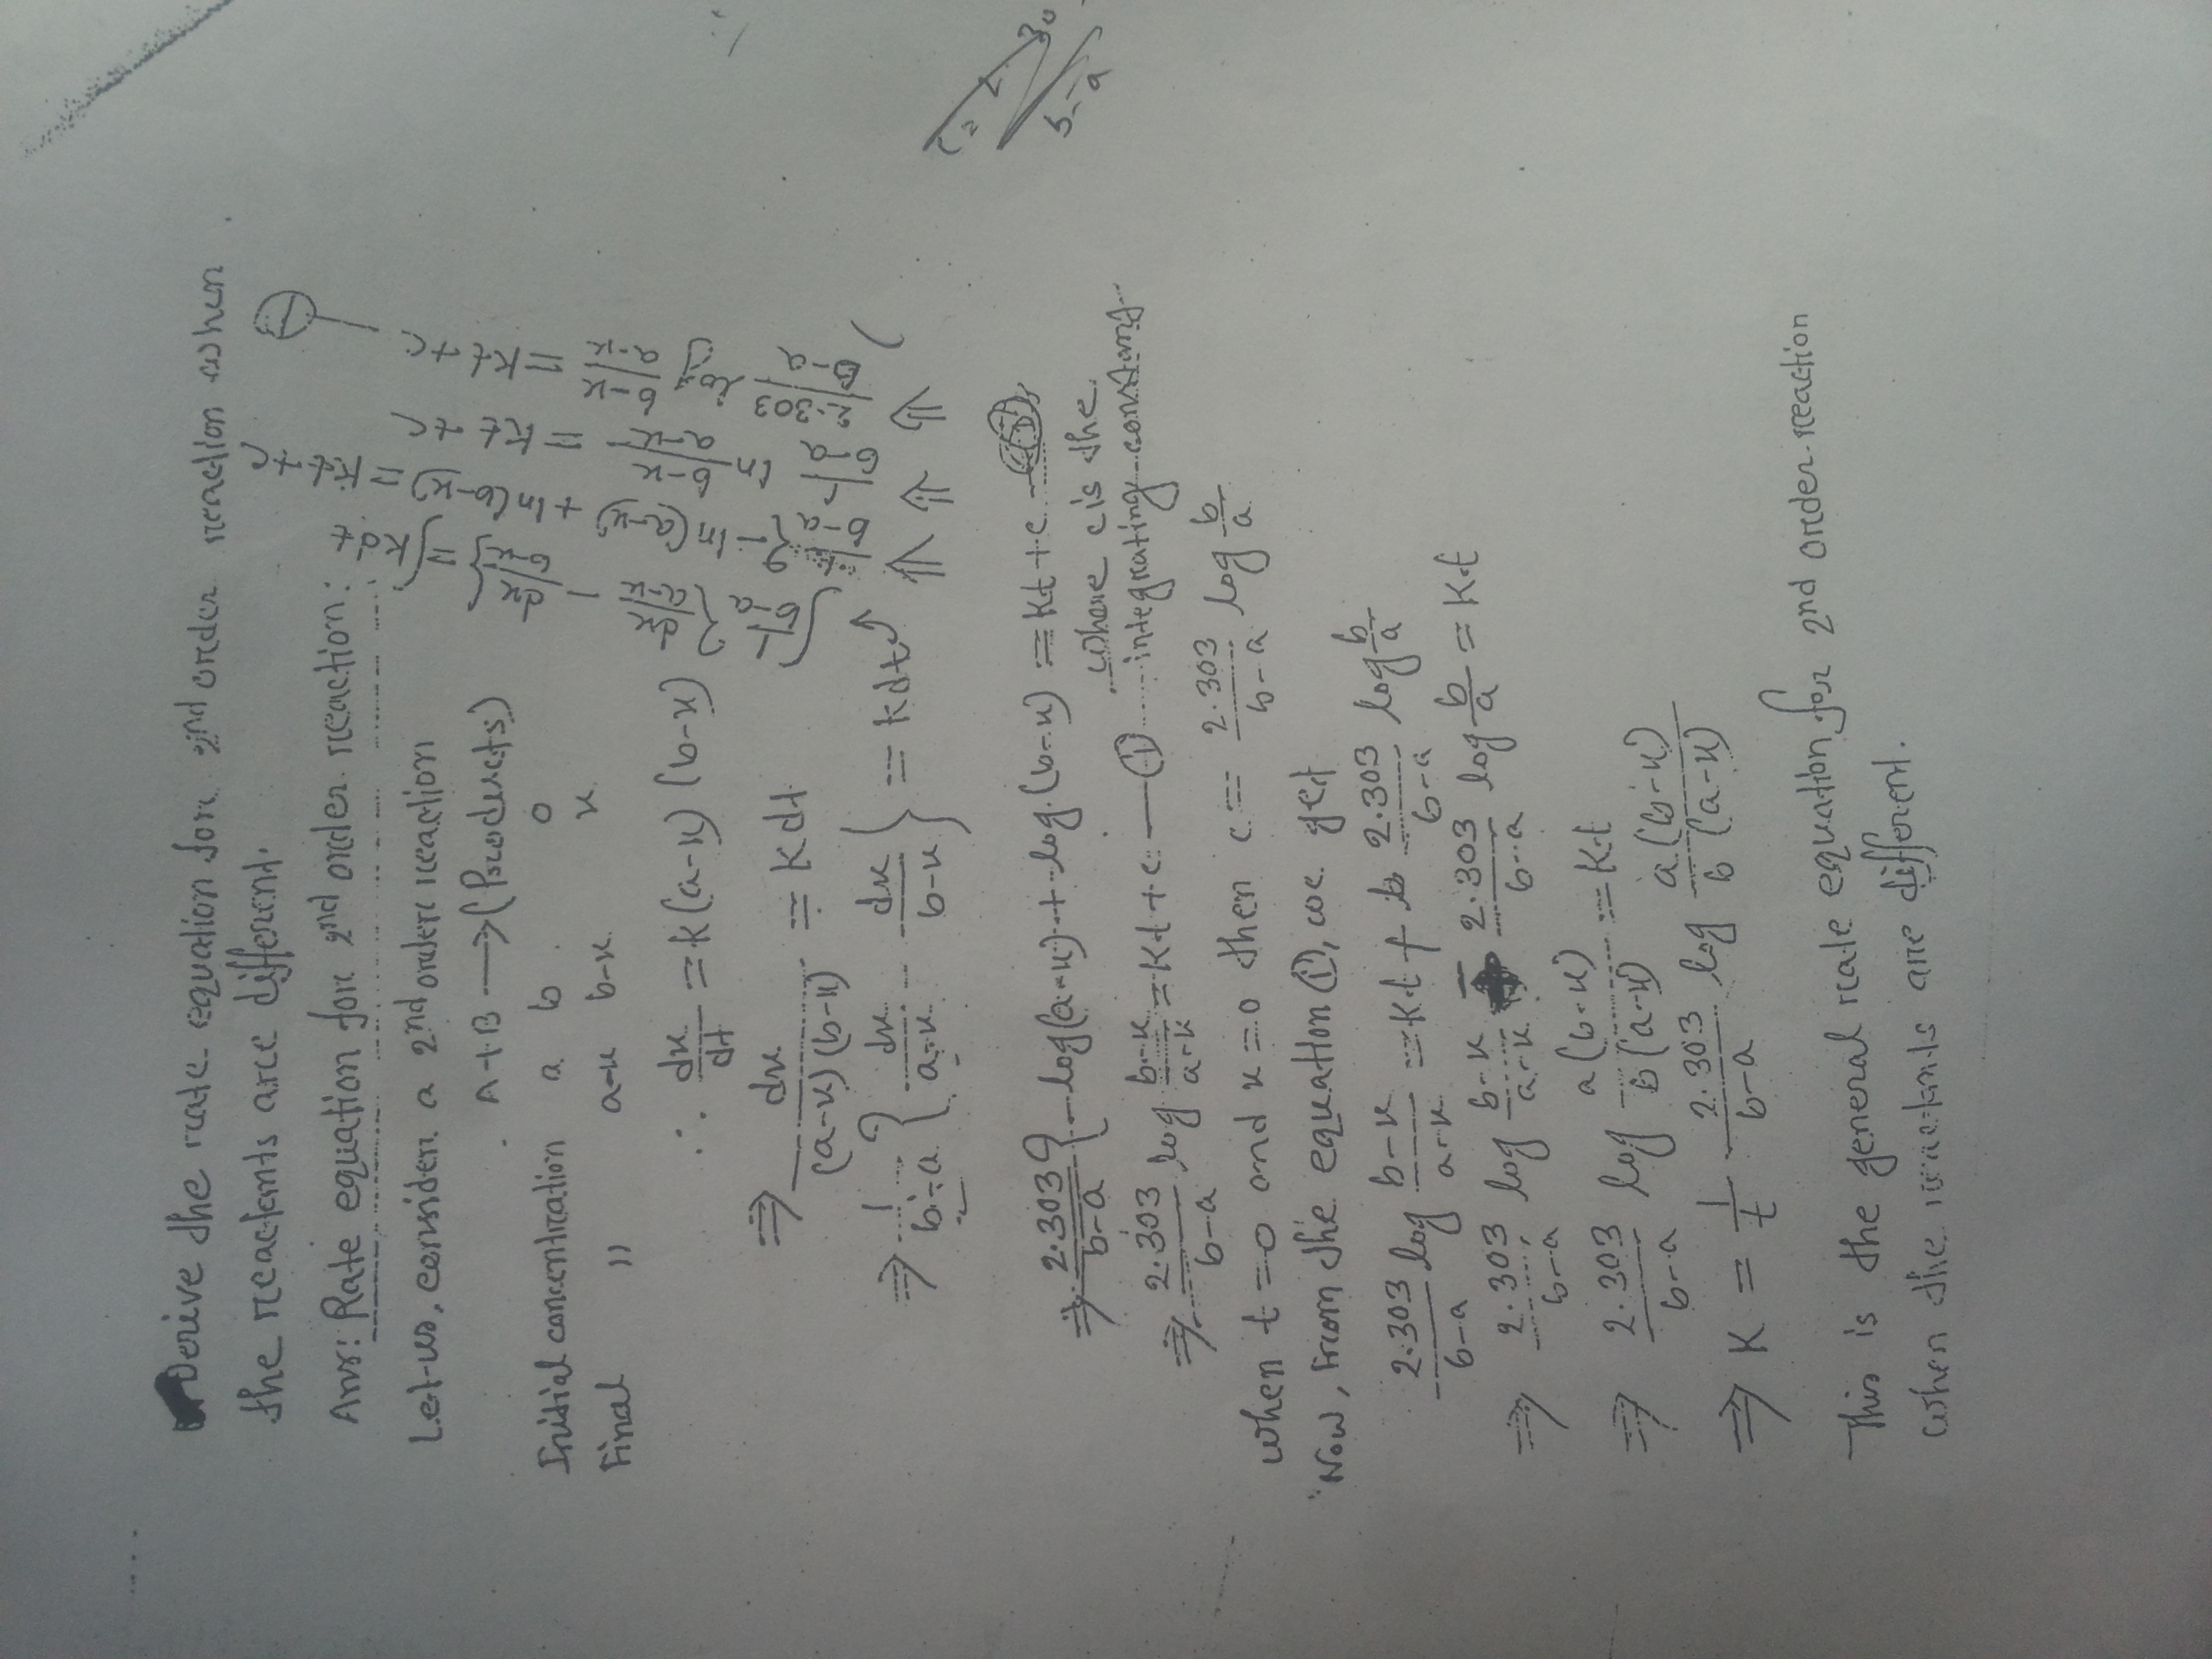 Derive the rate equation for 2nd order reaction when
the reactants are different.
Ans: Rate equation for 2nd order reaction:
Let us, consider a 2nd order reaction
A+B ⟶ (Products)
Initial concentration a b 0
Final " a-x b-x x
∴ dx/dt = k(a-x) (b-x)
⇒ dx/(a-x)(b-x) = Kdt
⇒ 1/(b-a) { dx/(a-x) - dx/(b-x) } = Kdt
∫ 1/(b-a) { dx/(a-x) - dx/(b-x) } = ∫Kdt
⇒ 1/(b-a) { -ln(a-x) + ln(b-x) = Kt+c
⇒ 1/(b-a) ln (b-x)/(a-x) = Kt+c
⇒ 2.303/(b-a) log (b-x)/(a-x) = Kt+c — (1)
⇒ 2.303/(b-a) { -log(a-x) + log (b-x) = Kt+c
where c is the
⇒ 2.303/(b-a) log (b-x)/(a-x) = Kt+c — (1) integrating constant
when t=0 and x=0 then c = 2.303/(b-a) log b/a
Now, From the equation (1), we get
2.303/(b-a) log (b-x)/(a-x) = Kt + 2.303/(b-a) log b/a
⇒ 2.303/(b-a) log (b-x)/(a-x) - 2.303/(b-a) log b/a = Kt
⇒ 2.303/(b-a) log a(b-x)/b(a-x) = Kt
⇒ K = 1/t 2.303/(b-a) log a(b-x)/b(a-x)
This is the general rate equation for 2nd order reaction
when the reactants are different.